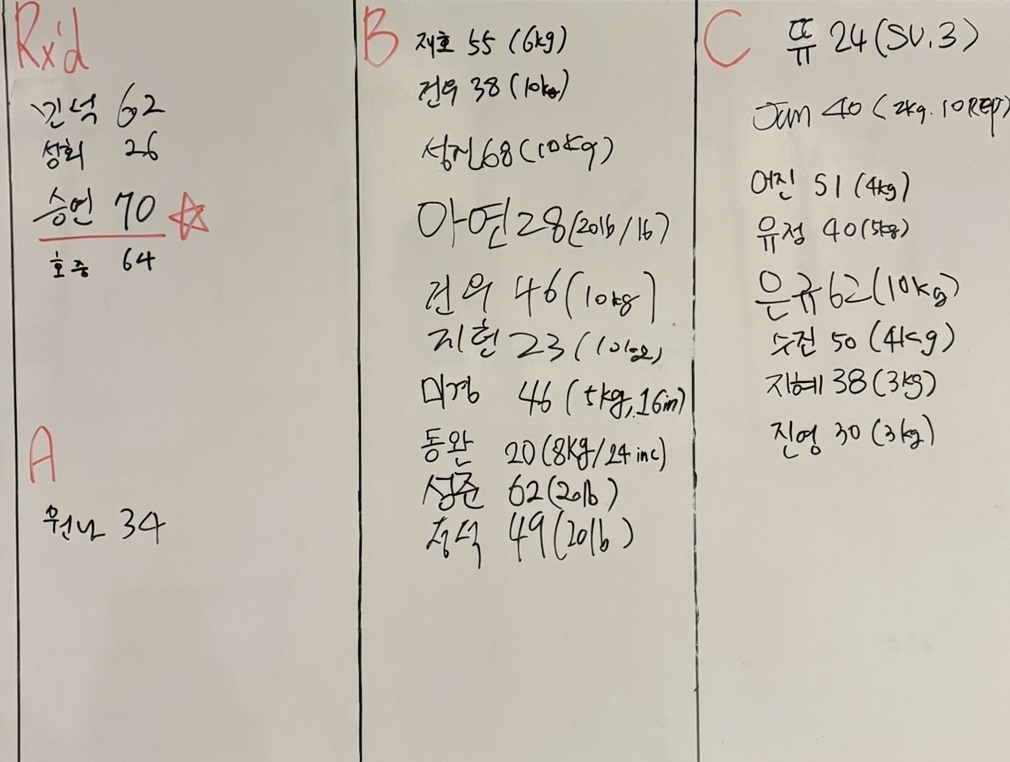 Rx'd
민석 62
상희 26
승연 70
호중 64
A
원나 34
B
재호 55 (6kg)
건우 38 (10kg)
성진 68 (10kg)
아연 28 (20lb/16)
건우 46 (10kg)
지현 23 (10kg)
미경 46 (5kg, 16in)
동완 20 (8kg/24 inc)
성준 62 (20lb)
49 (20lb)
C
뜌 24 (SV.3)
Jan 40 (2kg. 10REP)
어진 51 (4kg)
유정 40 (5kg)
은규 62 (10kg)
수진 50 (4kg)
지혜 38 (3kg)
진영 30 (3kg)